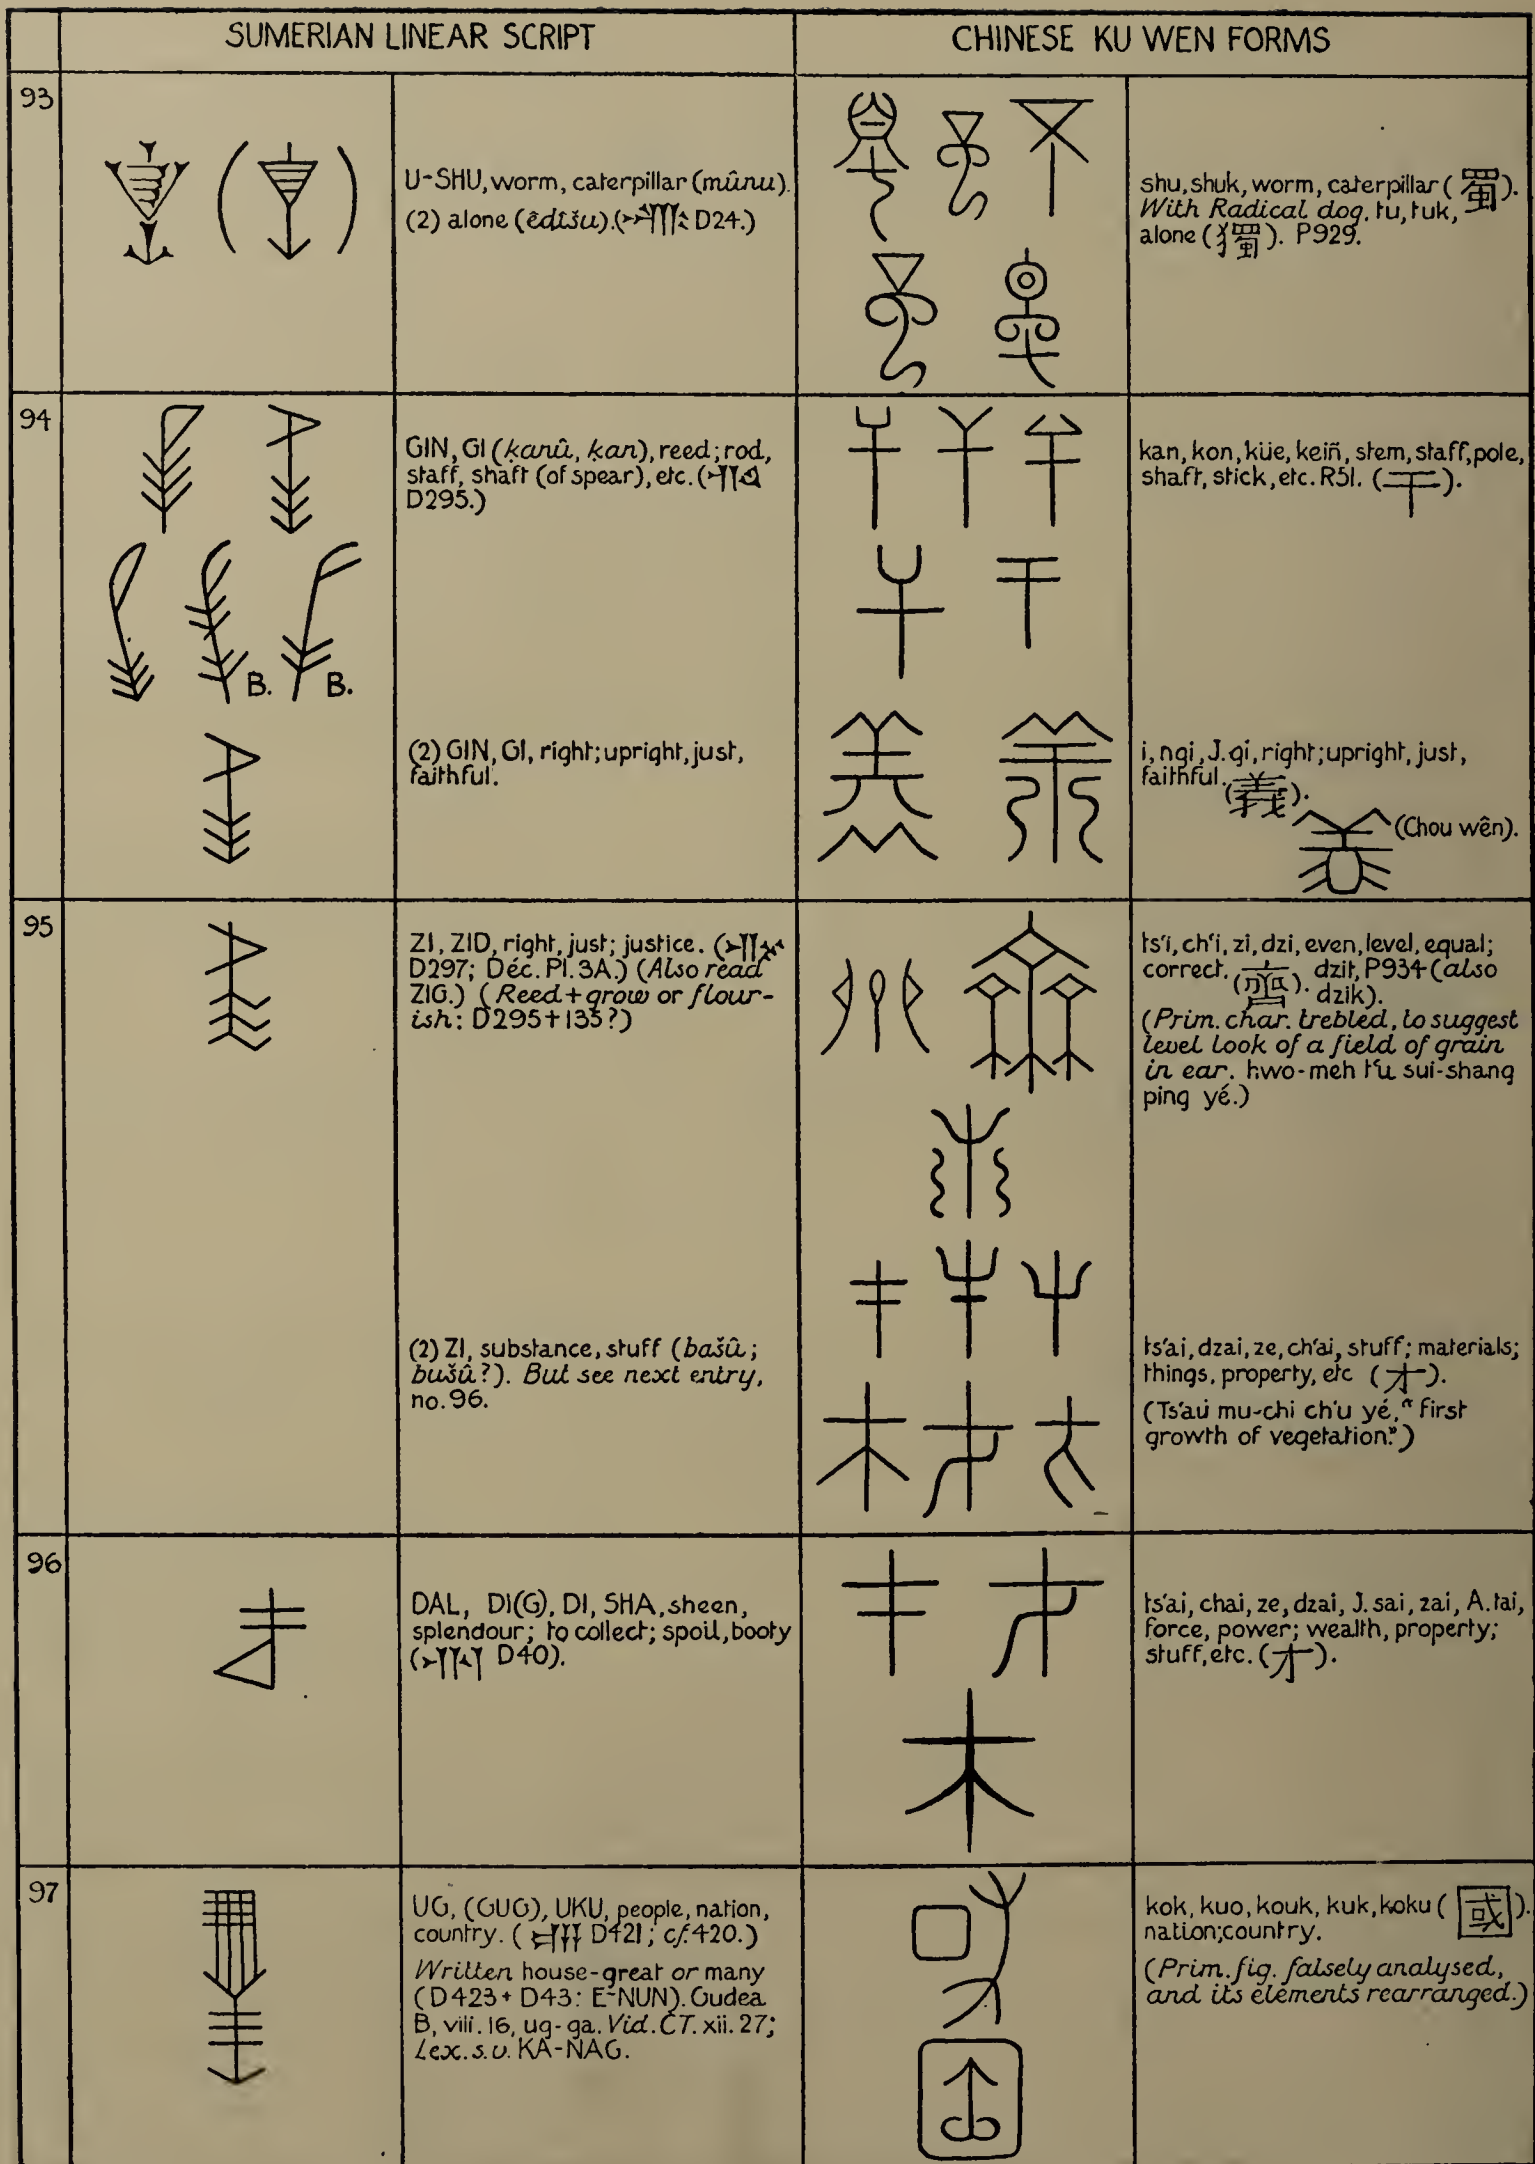 SUMERIAN LINEAR SCRIPT
CHINESE KU WEN FORMS
93
U-SHU, worm, caterpillar (mûnu).
(2) alone (êdišu). ( D24.)
shu, shuk, worm, caterpillar (蜀).
With Radical dog, tu, tuk,
alone (獨). P929.
94
B.
B.
GIN, GI (ḳanû, ḳan), reed; rod,
staff, shaft (of spear), etc. (
D295.)
kan, kon, küe, keiñ, stem, staff, pole,
shaft, stick, etc. R51. (干).
(2) GIN, GI, right; upright, just,
faithful.
i, ngi, J. gi, right; upright, just,
faithful. (義).
(Chou wên).
95
ZI, ZID, right, just; justice. (
D297; Déc. Pl. 3A.) (Also read
ZIG.) (Reed + grow or flour-
ish: D295+135?)
ts'i, ch'i, zi, dzi, even, level, equal;
correct. (齊). dzit, P934 (also
dzik).
(Prim. char. trebled, to suggest
level look of a field of grain
in ear. hwo-meh t'u sui-shang
ping yé.)
(2) ZI, substance, stuff (bašû;
bušû?). But see next entry,
no. 96.
ts'ai, dzai, ze, ch'ai, stuff; materials;
things, property, etc (才).
(Ts'au mu-chi ch'u yé, "first
growth of vegetation.")
96
DAL, DI(G), DI, SHA, sheen,
splendour; to collect; spoil, booty
( D40).
ts'ai, chai, ze, dzai, J. sai, zai, A. tai,
force, power; wealth, property;
stuff, etc. (才).
97
UG, (GUG), UKU, people, nation,
country. ( D421; cf. 420.)
Written house-great or many
(D423 + D43: E-NUN). Gudea
B, viii. 16, ug-ga. Vid. CT. xii. 27;
Lex. s.v. KA-NAG.
kok, kuo, kouk, kuk, koku (國).
nation; country.
(Prim. fig. falsely analysed,
and its elements rearranged.)